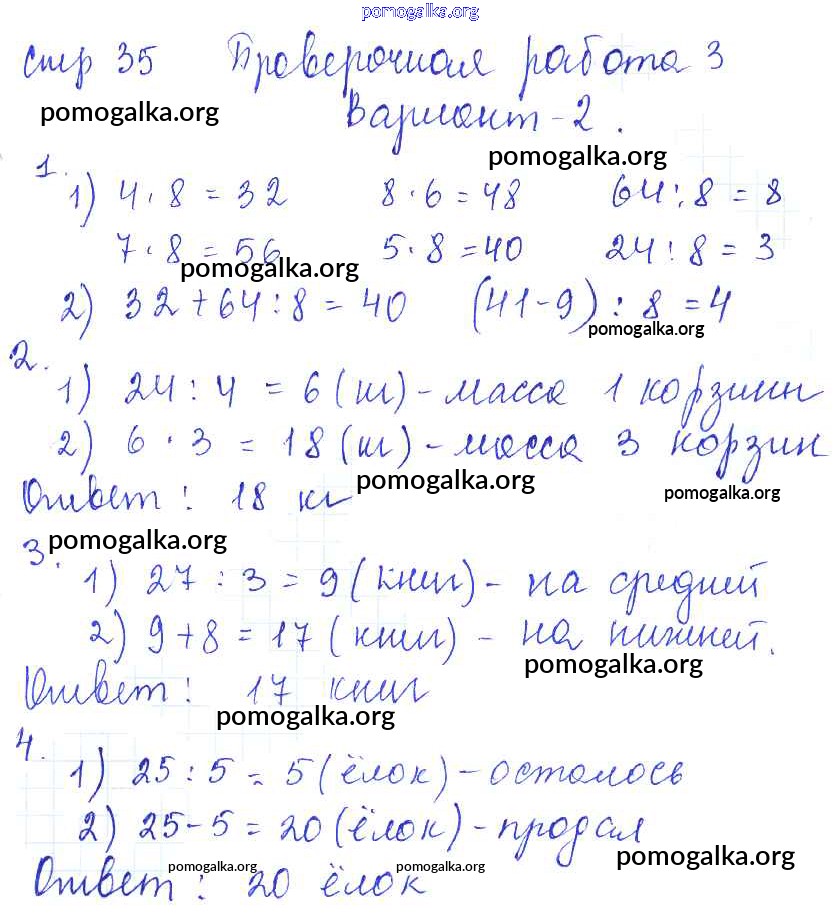 pomogalka.org
стр 35 Проверочная работа 3
pomogalka.org
Вариант-2.
pomogalka.org
1.
1) 4·8=32 8·6=48 64:8=8
7·8=56 5·8=40 24:8=3
pomogalka.org
2) 32+64:8=40 (41-9):8=4
pomogalka.org
2.
1) 24:4=6(кг)-масса 1 корзины
2) 6·3=18(кг)-масса 3 корзин
pomogalka.org
Ответ: 18 кг
pomogalka.org
3. pomogalka.org
1) 27:3=9(книг)-на средней
2) 9+8=17(книг)-на нижней.
pomogalka.org
Ответ: 17 книг
pomogalka.org
4.
1) 25:5=5(ёлок)-осталось
2) 25-5=20(ёлок)-продал
pomogalka.org pomogalka.org pomogalka.org
Ответ: 20 ёлок